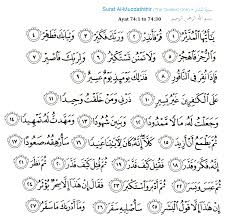 Surat Al-Muddaththir (The Cloaked One) - سورة المدثر
Ayat 74:1 to 74:30
يَٰٓأَيُّهَا ٱلْمُدَّثِّرُ ١ قُمْ فَأَنذِرْ ٢ وَرَبَّكَ فَكَبِّرْ ٣ وَثِيَابَكَ فَطَهِّرْ ٤
وَٱلرُّجْزَ فَٱهْجُرْ ٥ وَلَا تَمْنُن تَسْتَكْثِرُ ٦ وَلِرَبِّكَ فَٱصْبِرْ ٧
فَإِذَا نُقِرَ فِى ٱلنَّاقُورِ ٨ فَذَٰلِكَ يَوْمَئِذٍ يَوْمٌ عَسِيرٌ ٩
عَلَى ٱلْكَٰفِرِينَ غَيْرُ يَسِيرٍ ١٠ ذَرْنِى وَمَنْ خَلَقْتُ وَحِيدًا ١١
وَجَعَلْتُ لَهُۥ مَالًا مَّمْدُودًا ١٢ وَبَنِينَ شُهُودًا ١٣ وَمَهَّدتُّ لَهُۥ تَمْهِيدًا ١٤
ثُمَّ يَطْمَعُ أَنْ أَزِيدَ ١٥ كَلَّآ إِنَّهُۥ كَانَ لِءَايَٰتِنَا عَنِيدًا ١٦ سَأُرْهِقُهُۥ صَعُودًا ١٧
إِنَّهُۥ فَكَّرَ وَقَدَّرَ ١٨ فَقُتِلَ كَيْفَ قَدَّرَ ١٩ ثُمَّ قُتِلَ كَيْفَ قَدَّرَ ٢٠ ثُمَّ نَظَرَ ٢١
ثُمَّ عَبَسَ وَبَسَرَ ٢٢ ثُمَّ أَدْبَرَ وَٱسْتَكْبَرَ ٢٣ فَقَالَ إِنْ هَٰذَآ إِلَّا سِحْرٌ يُؤْثَرُ ٢٤
إِنْ هَٰذَآ إِلَّا قَوْلُ ٱلْبَشَرِ ٢٥ سَأُصْلِيهِ سَقَرَ ٢٦ وَمَآ أَدْرَىٰكَ مَا سَقَرُ ٢٧